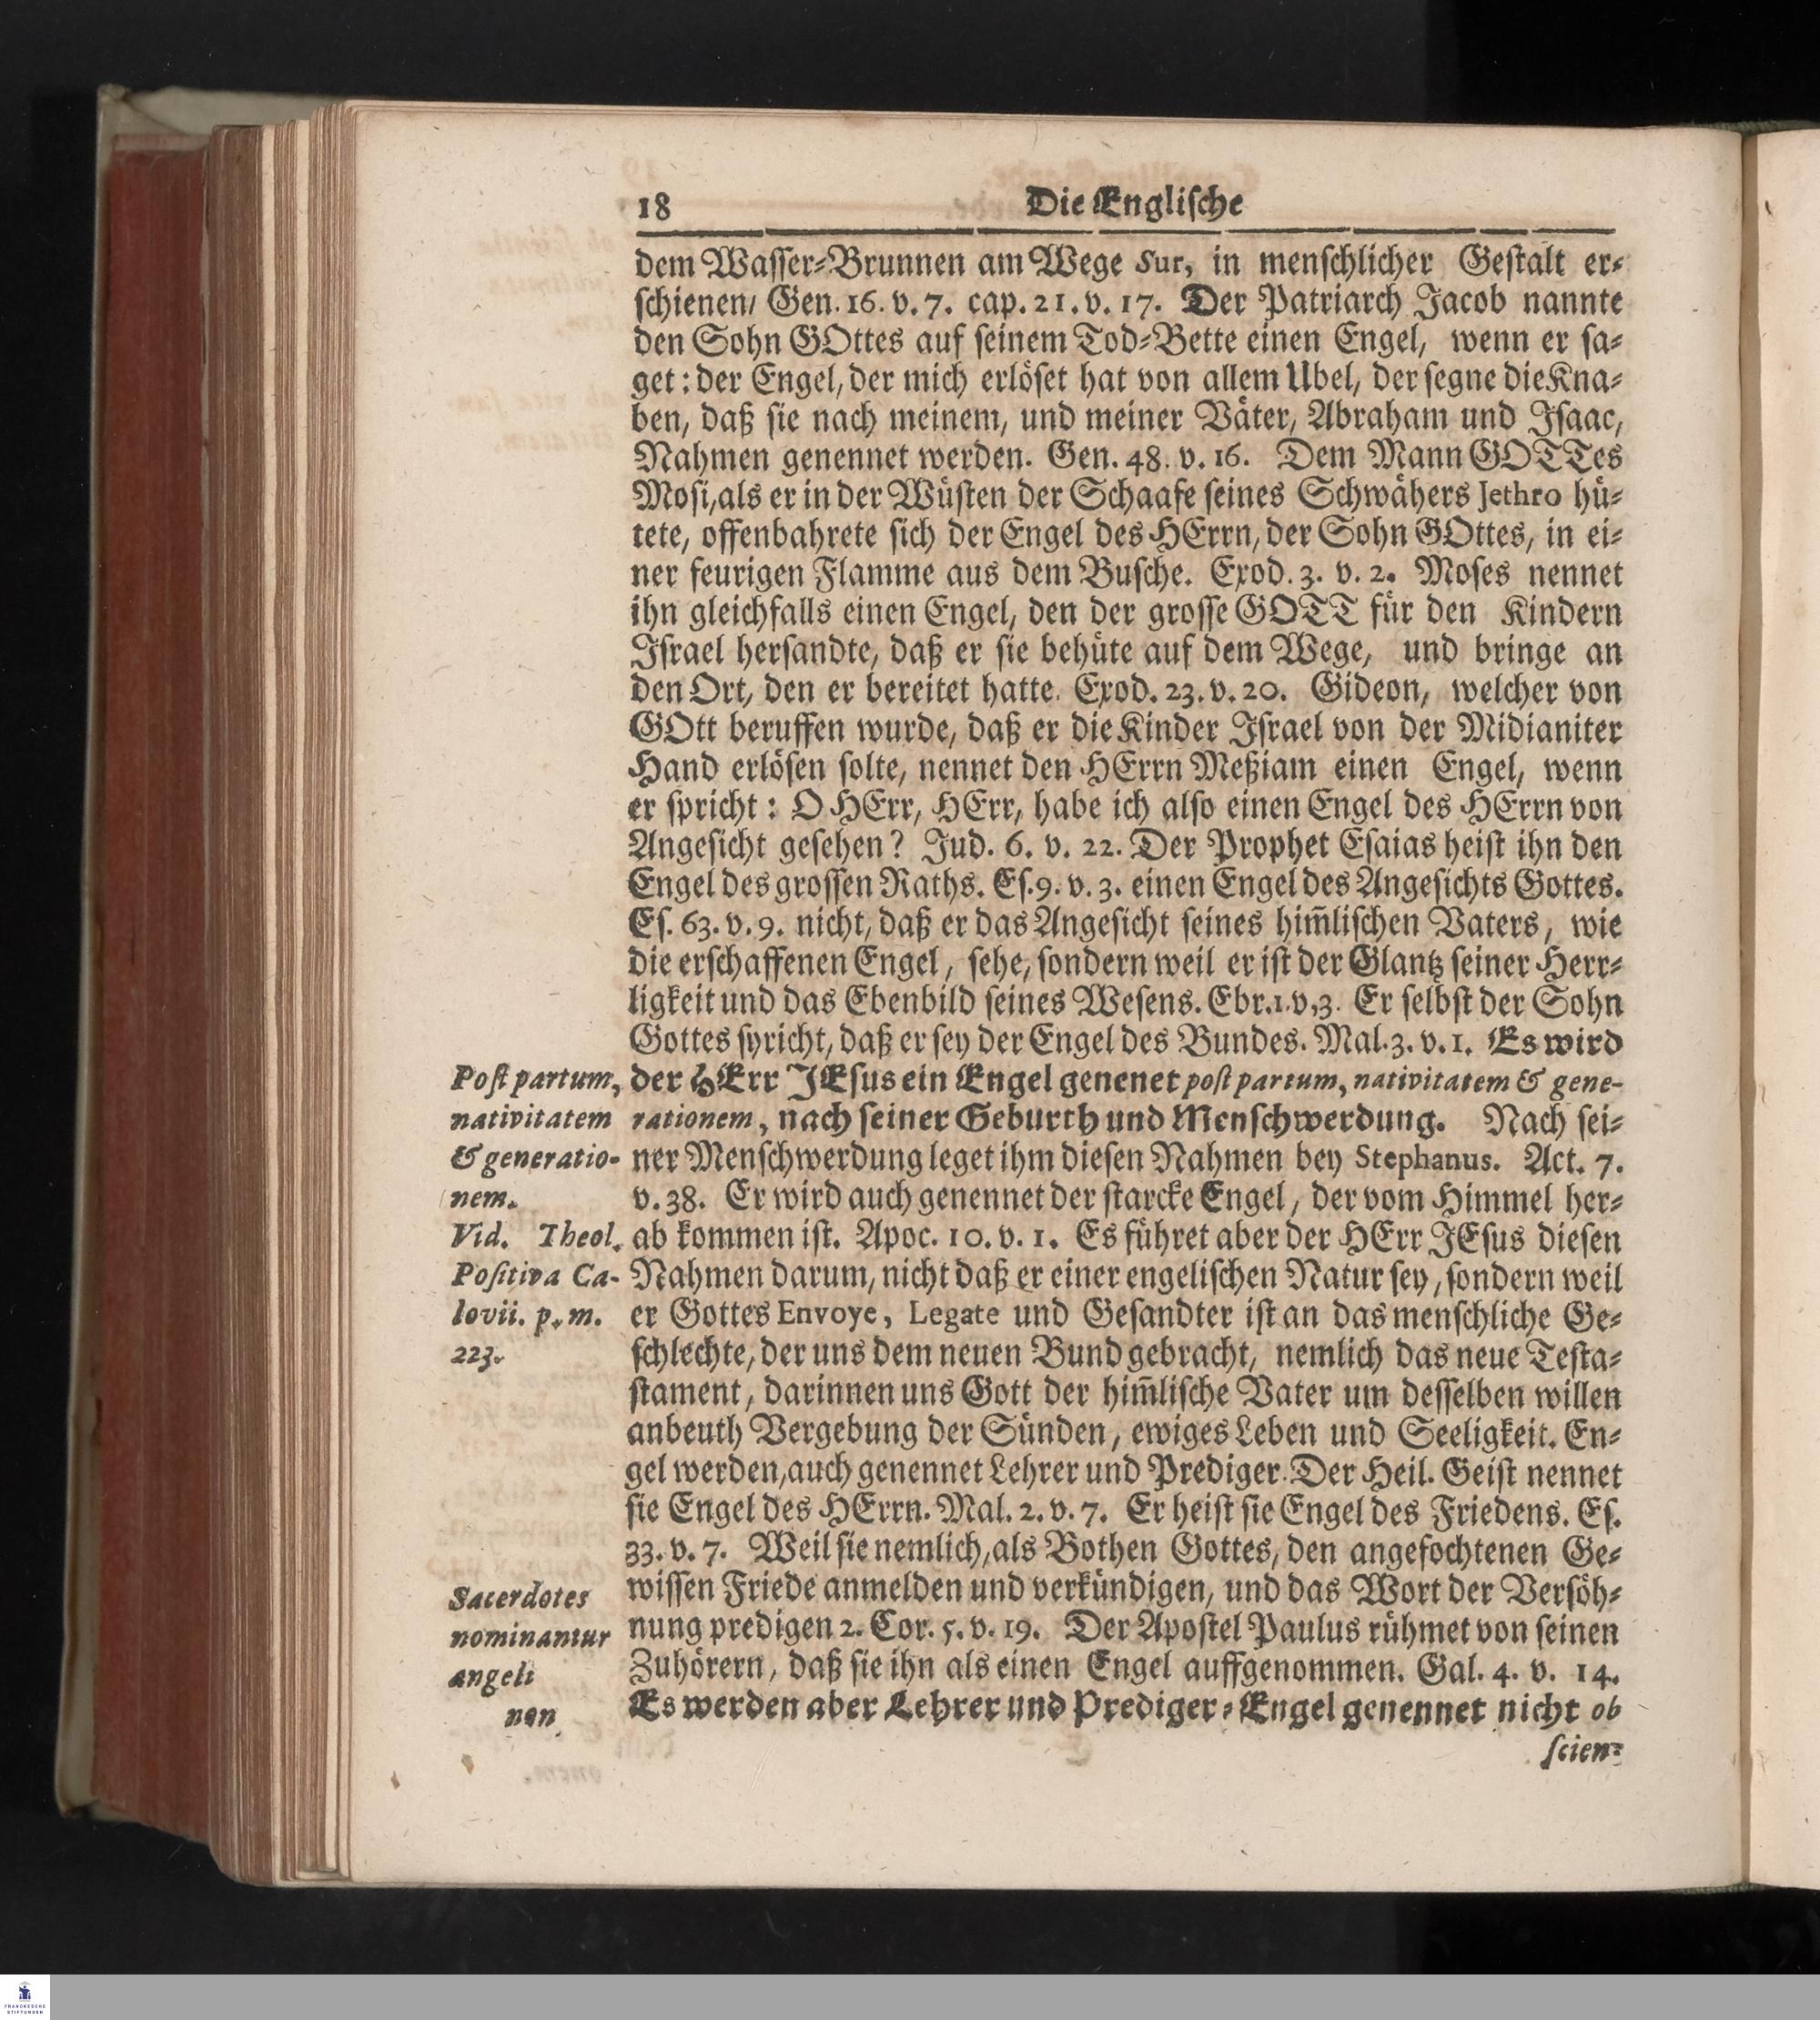 18
Die Englische
dem Wasser-Brunnen am Wege Sur, in menschlicher Gestalt er-
schienen/ Gen. 16. v. 7. cap. 21. v. 17. Der Patriarch Jacob nannte
den Sohn GOttes auf seinem Tod-Bette einen Engel, wenn er sa-
get: der Engel, der mich erlöset hat von allem Ubel, der segne die Kna-
ben, daß sie nach meinem, und meiner Väter, Abraham und Isaac,
Nahmen genennet werden. Gen. 48. v. 16. Dem Mann GOTTes
Mosi, als er in der Wüsten der Schaafe seines Schwähers Jethro hü-
tete, offenbahrete sich der Engel des HErrn, der Sohn GOttes, in ei-
ner feurigen Flamme aus dem Busche. Exod. 3. v. 2. Moses nennet
ihn gleichfalls einen Engel, den der grosse GOTT für den Kindern
Israel hersandte, daß er sie behüte auf dem Wege, und bringe an
den Ort, den er bereitet hatte. Exod. 23. v. 20. Gideon, welcher von
GOtt beruffen wurde, daß er die Kinder Israel von der Midianiter
Hand erlösen solte, nennet den HErrn Meßiam einen Engel, wenn
er spricht: O HErr, HErr, habe ich also einen Engel des HErrn von
Angesicht gesehen? Jud. 6. v. 22. Der Prophet Esaias heist ihn den
Engel des grossen Raths. Es. 9. v. 3. einen Engel des Angesichts Gottes.
Es. 63. v. 9. nicht, daß er das Angesicht seines him̃lischen Vaters, wie
die erschaffenen Engel, sehe, sondern weil er ist der Glantz seiner Herr-
ligkeit und das Ebenbild seines Wesens. Ebr. 1. v, 3. Er selbst der Sohn
Gottes spricht, daß er sey der Engel des Bundes. Mal. 3. v. 1. Es wird
der HErr JEsus ein Engel genenet post partum, nativitatem & gene-
rationem, nach seiner Geburth und Menschwerdung. Nach sei-
ner Menschwerdung leget ihm diesen Nahmen bey Stephanus. Act. 7.
v. 38. Er wird auch genennet der starcke Engel, der vom Himmel her-
ab kommen ist. Apoc. 10. v. 1. Es führet aber der HErr JEsus diesen
Nahmen darum, nicht daß er einer engelischen Natur sey, sondern weil
er Gottes Envoye, Legate und Gesandter ist an das menschliche Ge-
schlechte, der uns dem neuen Bund gebracht, nemlich das neue Testa-
stament, darinnen uns Gott der him̃lische Vater um desselben willen
anbeuth Vergebung der Sünden, ewiges Leben und Seeligkeit. En-
gel werden, auch genennet Lehrer und Prediger. Der Heil. Geist nennet
sie Engel des HErrn. Mal. 2. v. 7. Er heist sie Engel des Friedens. Es.
33. v. 7. Weil sie nemlich, als Bothen Gottes, den angefochtenen Ge-
wissen Friede anmelden und verkündigen, und das Wort der Versöh-
nung predigen 2. Cor. 5. v. 19. Der Apostel Paulus rühmet von seinen
Zuhörern, daß sie ihn als einen Engel auffgenommen. Gal. 4. v. 14.
Es werden aber Lehrer und Prediger-Engel genennet nicht ob
scien-
Post partum,
nativitatem
& generatio-
nem.
Vid. Theol.
Positiva Ca-
lovii. p. m.
223.
Sacerdotes
nominantur
angeli
non
FRANCKESCHE
STIFTUNGEN